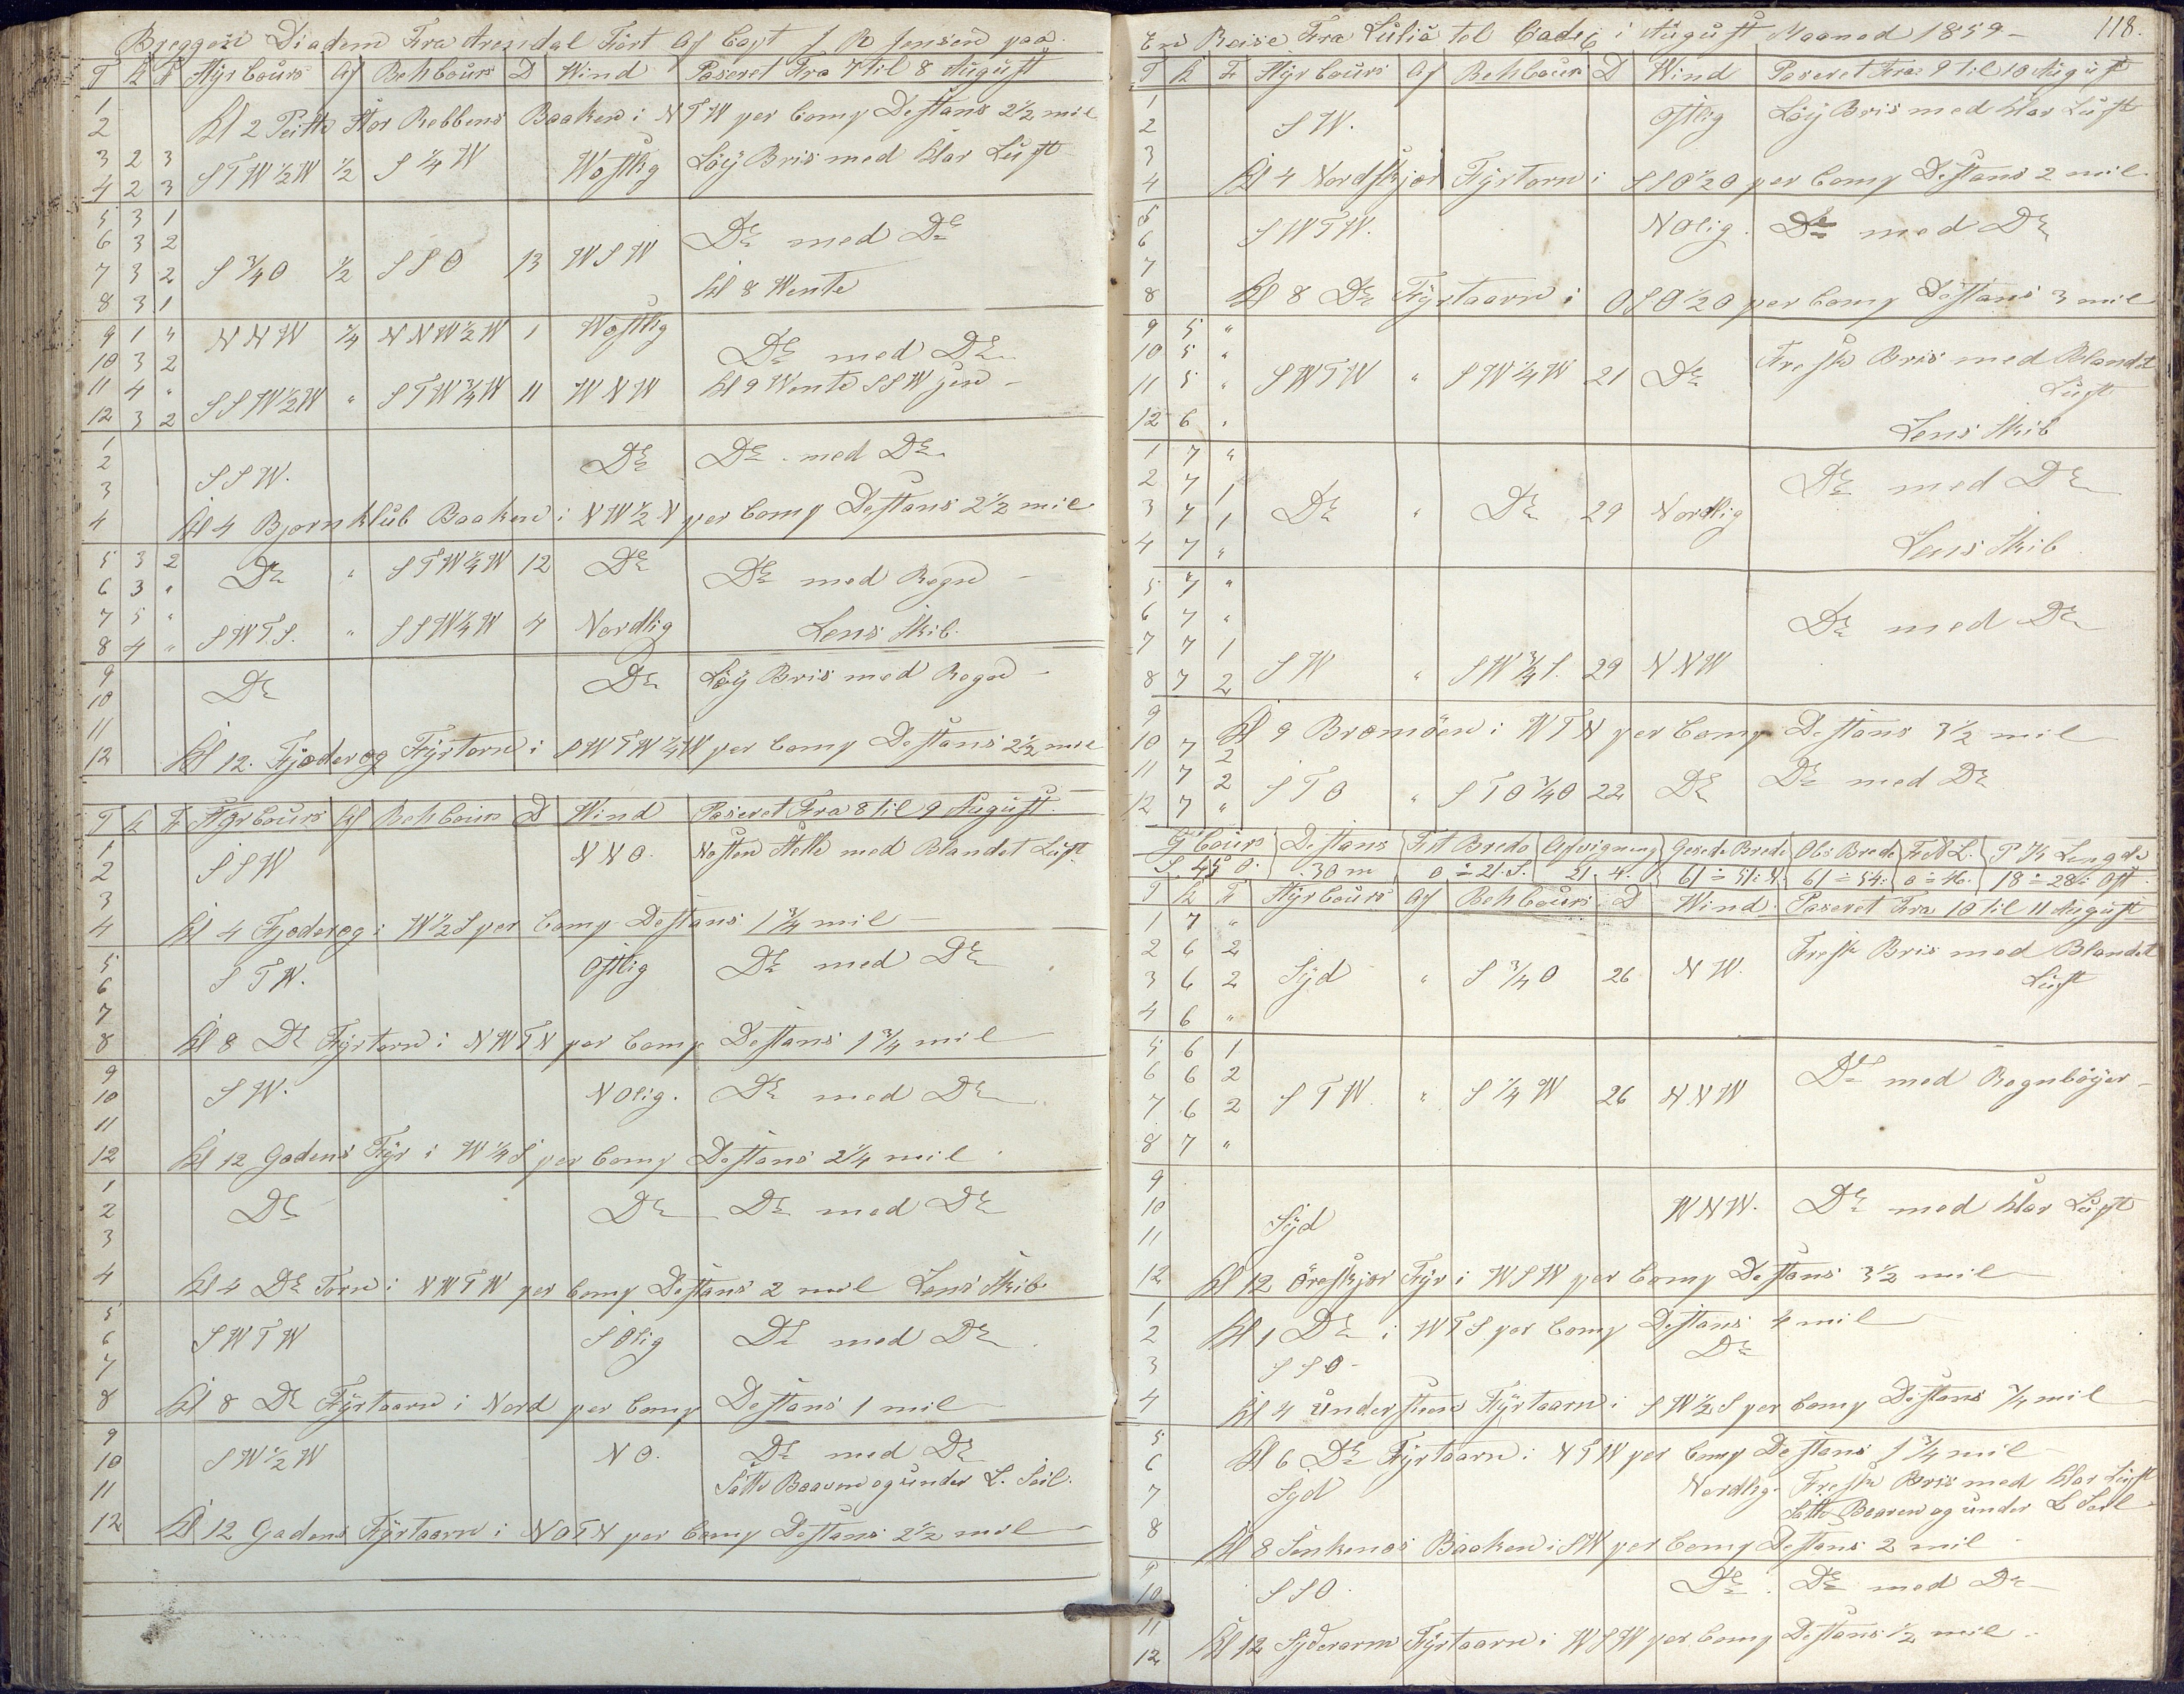 Breggen Diadem Fra Arendal Fört Af Capt J R Jensen paa
T K F Styrcours Af Behcours D Wind Paseret Fra 7 til 8 August
1
2 Kl 2 Peilte Stor Rebbens Baaken i N T W per Comp Destans 2 1/2 mil
3 2 3 STW 1/2 W 1/2 S 1/4 W Westlig Löy Bris med klar Luft
4 2 3
5 3 1
6 3 2 De med De
7 3 2 S 3/4 O 1/2 SSO 13 WSW
8 3 1 Kl 8 Wente
9 1 " NNW 1/4 NNW 1/2 W 1 Westlig
10 3 2 De med De
11 4 " SSW 1/2 W " STW 3/4 W 11 WNW Kl 9 Wente SSW jen
12 3 2
1
2 De De med De
3 SSW.
4 Kl 4 Bjornklub Baaken i NW 1/2 N per Comp Destans 2 1/2 mil
5 3 2 De " STW 1/4 W 12 De De med Regn
6 3 "
7 5 " SWTS. " SSW 1/4 W 4 Nordlig Lens Skib.
8 4 "
9 De De Löy Bris med Regn
10
11
12 Kl 12. Fjoderog Fyrtorn i SWTW 1/4 W per Comp Destans 2 1/2 mil
T K F Styrcours Af Behcours D Wind Paseret Fra 8 til 9 August
1 NNO. Nesten Stelle med Blandet Luft
2 SSW
3
4 Kl 4 Fjoderog i W 1/2 S per Comp Destans 1 3/4 mil
5 Ostlig De med De
6 STW.
7
8 Kl 8 De Fyrtorn i NWTN per Comp Destans 1 3/4 mil
9
10 SW. NOlig. De med De
11
12 Kl 12 Gadens Fyr i W 1/4 S per Comp Destans 2 1/4 mil
1
2 De De De med De
3
4 Kl 4 De Torn i NWTW per Comp Destans 2 mil Lens Skib
5
6 SWTW SOlig De med De
7
8 Kl 8 De Fyrtaarn i Nord per Comp Destans 1 mil
9
10 SW 1/2 W NO. De med De
11 Satte Baaren og under L. Seil.
12 Kl 12 Gadens Fyrtaarn i NOTN per Comp Destans 2 1/2 mil
En Reise Fra Lulia tol Cadix i August Maaned 1859 118.
T K F Styrcours Af Behcours D Wind Paseret Fra 9 til 10 August
1 Ostlig Löy Bris med klar Luft
2 SW.
3
4 Kl 4 Nordskjær Fyrtorn i SSO 1/2 O per Comp Destans 2 mil
5 NOlig. De med De
6 SWTW.
7
8 Kl 8 De Fyrtaarn i OSO 1/2 O per Comp Destans 3 mil
9 5 "
10 5 " Fresk Bris med Blandet
11 5 " SWTW " SW 1/4 W 21 De Luft
12 6 " Lens Skib
1 7 "
2 7 1 De med De
3 7 1 De " De 29 Nordlig
4 7 " Lens Skib
5 7 "
6 7 " De med De
7 7 1
8 7 2 SW " SW 3/4 S. 29 NNW
9 Kl 9 Bramöen i WTN per Comp Destans 3 1/2 mil
10 7 2
11 7 2 STO " STO 3/4 O 22 De De med De
12 7 "
G Cours Destans FA Brede Afvigning Gesede Brede Obs Brede FAL. P K Lengde
S. 45° O. 30 m 0 ÷ 21. S. 21. 61 ÷ 51: N 61 ÷ 54: 0 ÷ 46. 18 ÷ 28: Ost
T K F Styrcours Af Behcours D Wind Paseret Fra 10 til 11 August
1 7 "
2 6 2 Fresk Bris med Blandet
3 6 2 Syd " S 3/4 O 26 NW. Luft
4 6 "
5 6 1
6 6 2 De med Regnböyer
7 6 2 STW " S 1/4 W 26 NNW
8 7 "
9
10 WNW. De med klar Luft
11 Syd
12 Kl 12 Öreskjær Fyr i WSW per Comp Destans 3 1/2 mil
1 Kl 1 De i WTS per Comp Destans 4 mil
2 De
3 SSO
4 Kl 4 Understeen Fyrtaarn i SW 1/2 S per Comp Destans 3/4 mil
5
6 Kl 6 De Fyrtaarn i NTW per Comp Destans 1 3/4 mil
7 Syd Nordlig. Fresk Bris med klar Luft
Satte Baaren og under L Seil
8 Kl 8 Sinkenæs Baaken i SW per Comp Destans 2 mil
9
10 SSO. De De med De
11
12 Kl 12 Syderarm Fyrtaarn i WSW per Comp Destans 1/2 mil